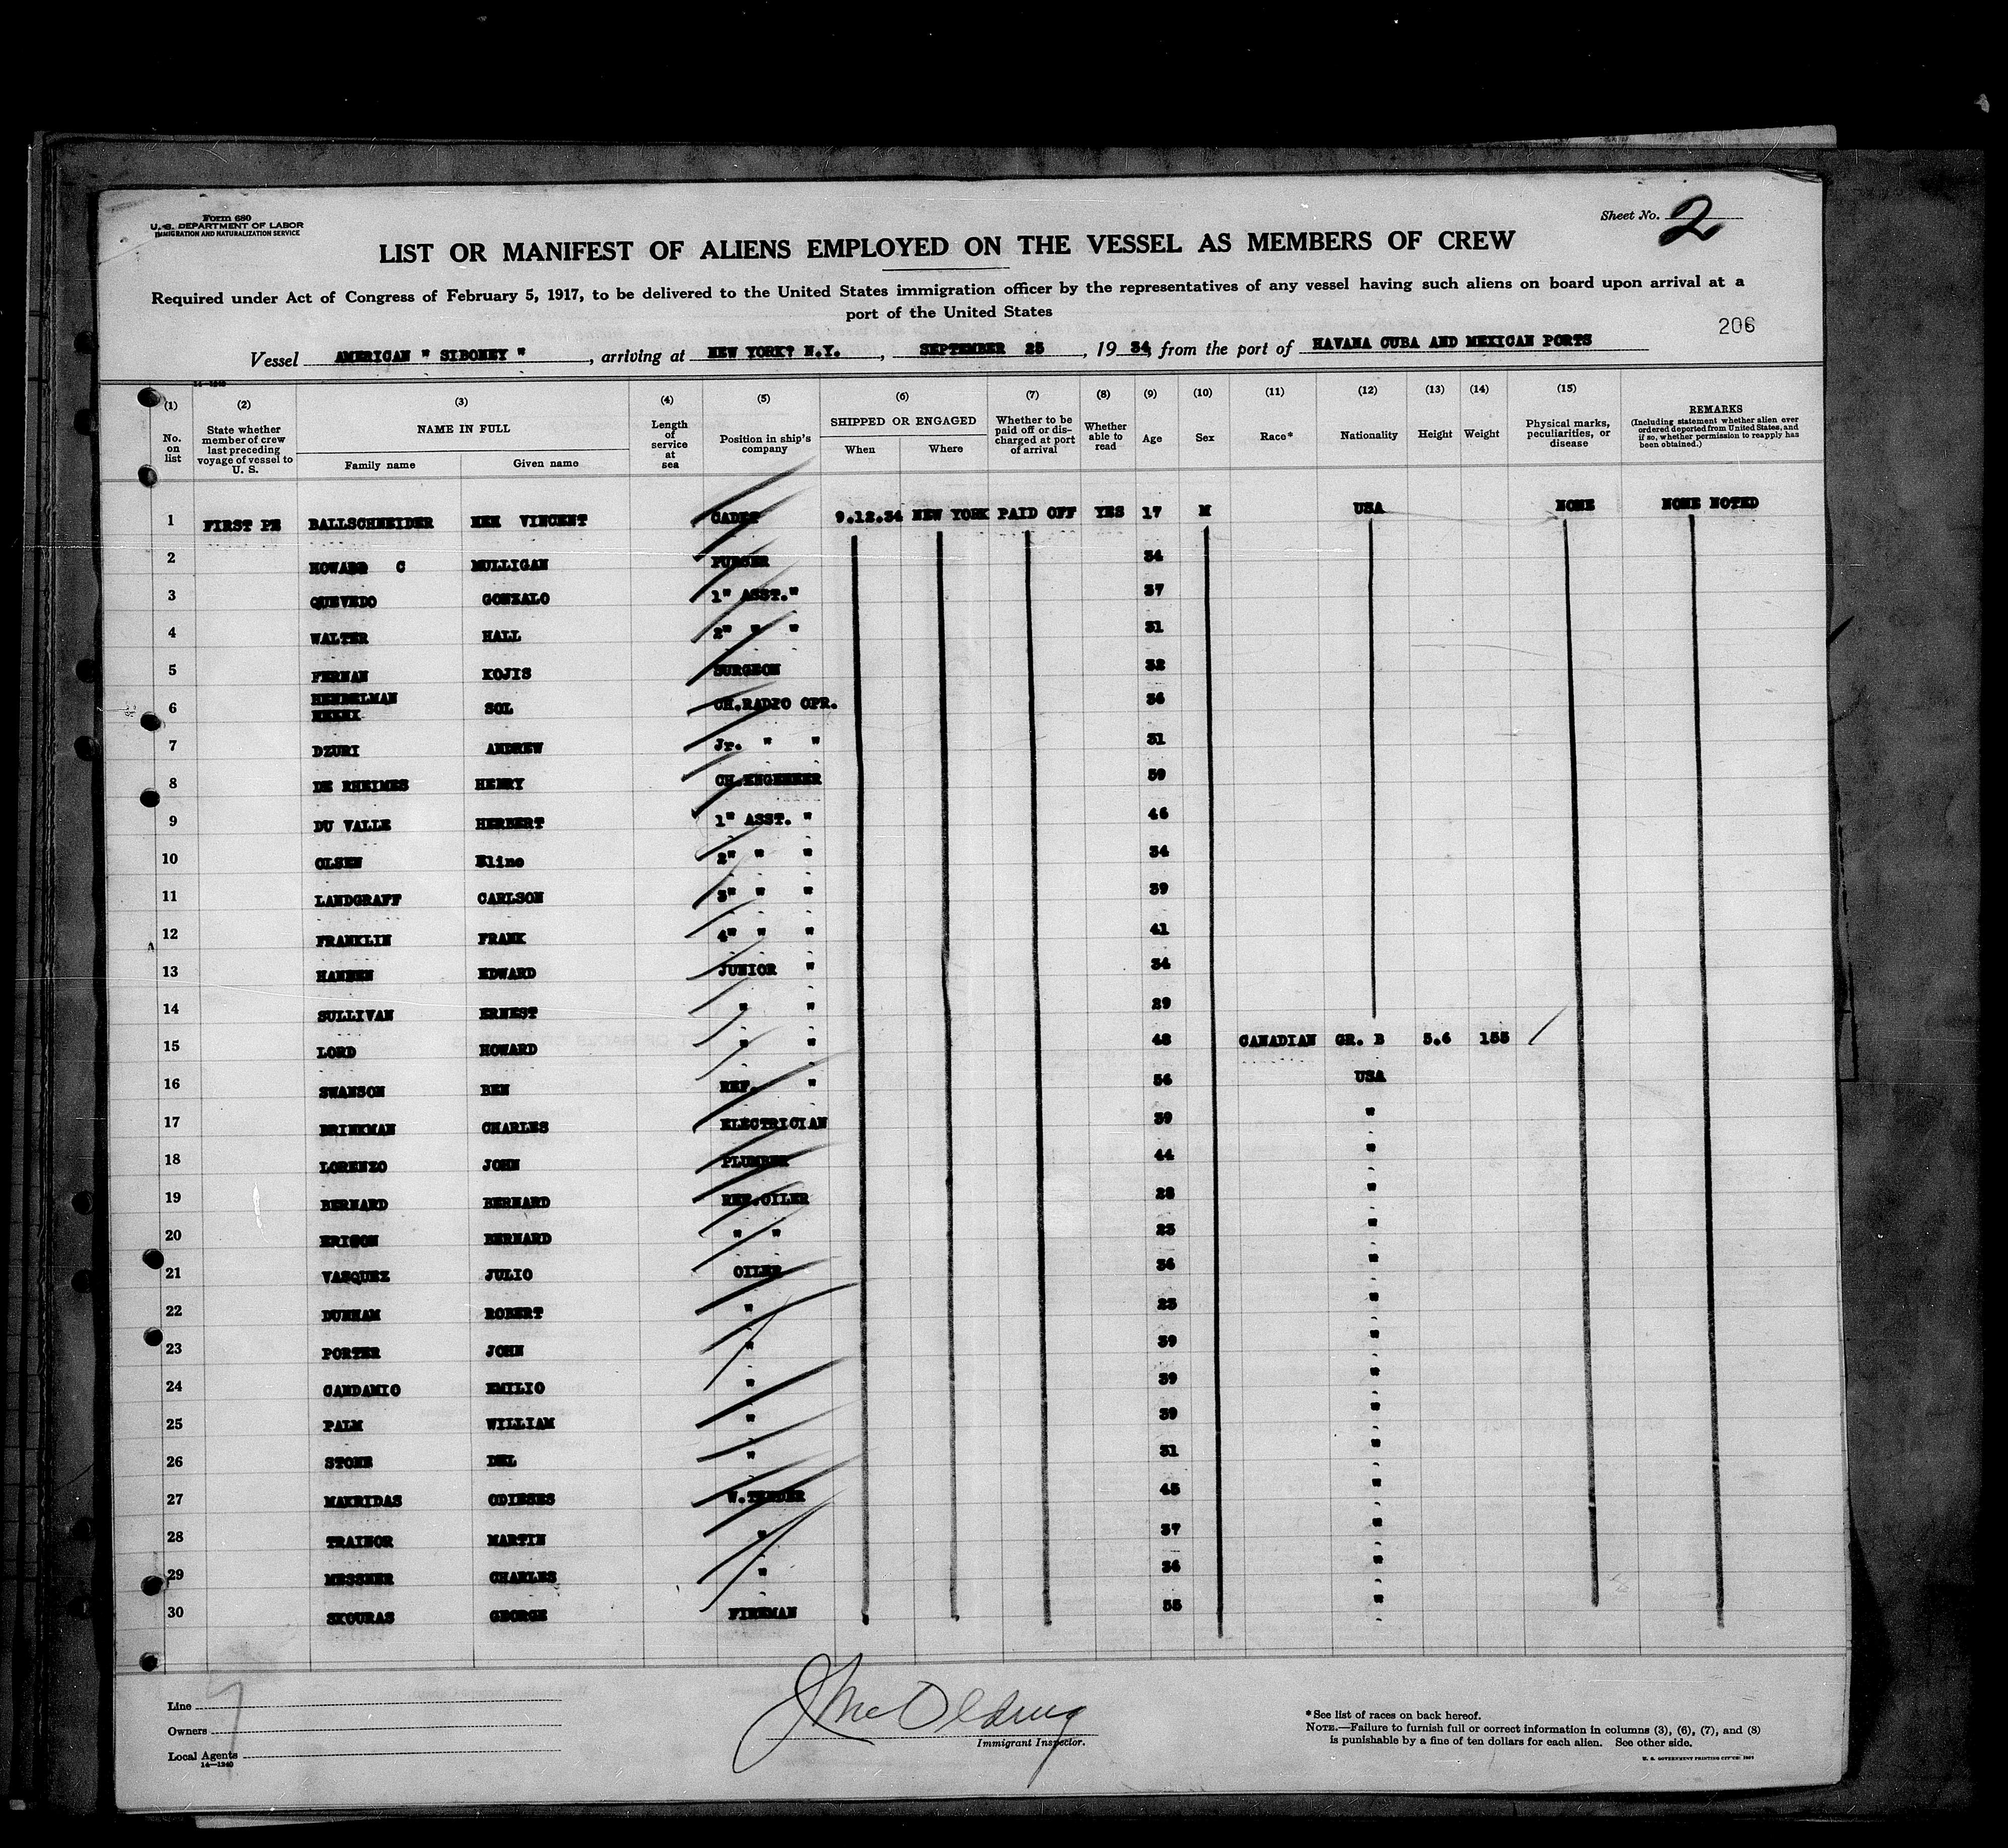 Form 680
U. S. DEPARTMENT OF LABOR
IMMIGRATION AND NATURALIZATION SERVICE
Sheet No. 2
LIST OR MANIFEST OF ALIENS EMPLOYED ON THE VESSEL AS MEMBERS OF CREW
Required under Act of Congress of February 5, 1917, to be delivered to the United States immigration officer by the representatives of any vessel having such aliens on board upon arrival at a
port of the United States
206
Vessel AMERICAN " SIBONEY ", arriving at NEW YORK? N.Y., SEPTEMBER 25, 1934, from the port of HAVANA CUBA AND MEXICAN PORTS
14—1240
(1) No. on list
(2) State whether member of crew last preceding voyage of vessel to U. S.
(3) NAME IN FULL Family name Given name
(4) Length of service at sea
(5) Position in ship's company
(6) SHIPPED OR ENGAGED When Where
(7) Whether to be paid off or discharged at port of arrival
(8) Whether able to read
(9) Age
(10) Sex
(11) Race*
(12) Nationality
(13) Height
(14) Weight
(15) Physical marks, peculiarities, or disease
REMARKS (Including statement whether alien ever ordered deported from United States, and if so, whether permission to reapply has been obtained.)
1 FIRST PE BALLSCHNEIDER VINCENT CADET 9.12.34 NEW YORK PAID OFF YES 17 M USA NONE NONE NOTED
2 HOWARD C MULLIGAN PURSER 34
3 QUEVEDO GONZALO 1" ASST." 37
4 WALTER HALL 2" " " 31
5 FERNAN KOJIS SURGEON 32
6 HENDELMAN SOL CH.RADIO OPR. 36
7 DZURI ANDREW Jr. " " 31
8 DE RHEIMES HENRY CH.ENGENEER 59
9 DU VALLE HERBERT 1" ASST. " 46
10 OLSEN Eline 2" " " 34
11 LANDGRAFF CARLSON 3" " " 39
12 FRANKLIN FRANK 4" " " 41
13 HANSEN EDWARD JUNIOR " 34
14 SULLIVAN ERNEST " " 29
15 LORD HOWARD " " 48 CANADIAN GR. B 5.6 155
16 SWANSON BEN REF. " 56 USA
17 BRINKMAN CHARLES ELECTRICIAN 39 "
18 LORENZO JOHN PLUMBER 44 "
19 BERNARD BERNARD REF.OILER 28 "
20 ERISON BERNARD " " 23 "
21 VASQUEZ JULIO OILER 36 "
22 DUNHAM ROBERT " 23 "
23 PORTER JOHN " 39 "
24 CANDAMIO EMILIO " 39 "
25 PALM WILLIAM " 39 "
26 STONE DEL " 31 "
27 MAKRIDAS ODIESES W.TENDER 45 "
28 TRAINOR MARTIN " 37 "
29 MESSNER CHARLES " 36 "
30 SKOURAS GEORGE FIREMAN 55 "
Line
Owners
Local Agents
14—1240
Immigrant Inspector.
*See list of races on back hereof.
NOTE.—Failure to furnish full or correct information in columns (3), (6), (7), and (8)
is punishable by a fine of ten dollars for each alien. See other side.